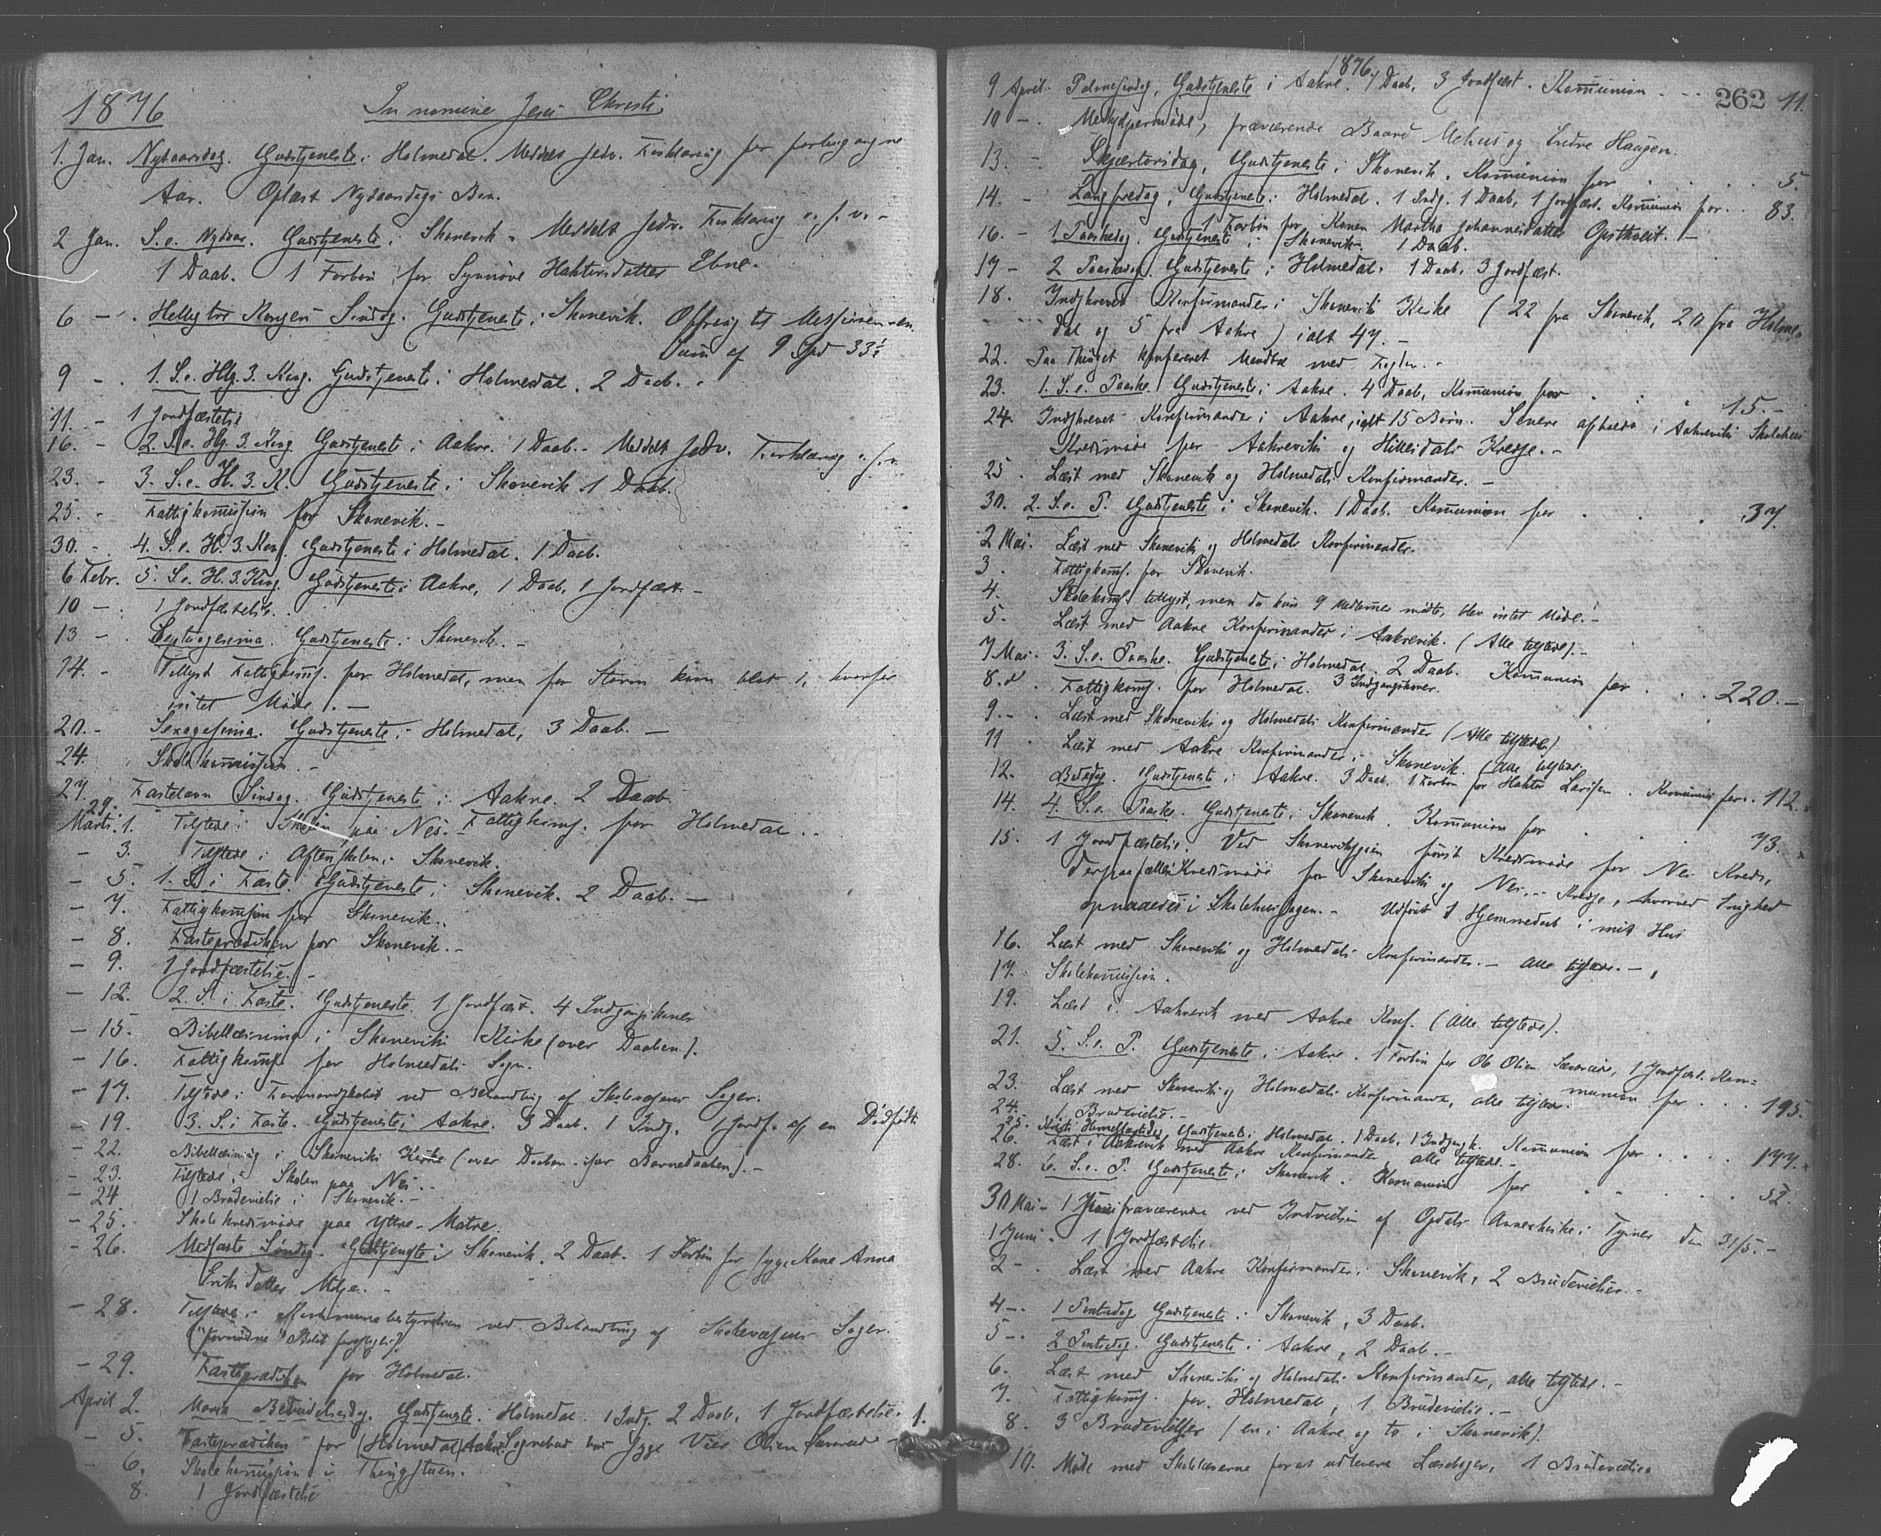 1876
In nomine Jesu Christi
1. Jan. Nydaarsdag. Gudstjeneste i Holmedal. Meddelt Jedv. Forklaring for forbigangne
Aar. Oplæst Nydaarsdags Bøn.
2 Jan. S. e. Nydaar. Gudstjeneste i Skonevik. Meddelt Jedv. Forklaring o. s. v. -
1 Daab. 1 Forbøn for Synnøve Haktorsdatter Ebne.
6 - . Hellig tre Kongers Søndag. Gudstjeneste i Skonevik. Offring til Missionen en
Sum af 9 Spd 33½
9 - . 1. S. e. Hlg. 3. Kong. Gudstjeneste i Holmedal. 2 Daab. .
11. - 1 Jordfæstelse
16. - 2. S. e. Hlg. 3. Kong. Gudstjeneste i Aakre. 1 Daab. - Meddelt Jedv. Forklaring o. s. v.
23. - 3. S. e. H. 3. K. Gudstjeneste i Skonevik. 1 Daab.
25. - Fattigkommission for Skonevik. -
30. - . 4. S. e. H. 3. Kon. Gudstjeneste i Holmedal. 1 Daab.
6 Febr. 5. S. e. H. 3. Kong. Gudstjeneste i Aakre, 1 Daab, 1 Jordfæst. -
10 - . 1 Jordfæstelse.
13 - . Septuagesima. Gudstjeneste i Skonevik. -
14. - Tillyst Fattigkomm. for Holmedal, men for Storm kom blot 1, hvorfor
intet Møde. . -
20. - Sexagesima. Gudstjeneste i Holmedal, 3 Daab. -
24. Skolekommission. -
27. Fastelavn Søndag. Gudstjeneste i Aakre. 2 Daab.
29. Fattigkomm. for Holmedal. .
Marts 1. Tilstede i Skolen paa Nes. -
- 3. Tilstede i Aftenskolen i Skonevik.
- 5. 1. S. i Faste. Gudstjeneste i Skonevik. 2 Daab. -
- 7. Fattigkommision for Skonevik. .
- 8. Fasteprædiken for Skonevik. -
- 9. 1 Jordfæstelse. -
- 12. 2. S. i Faste. Gudstjeneste. 1 Jordfæst. 4 Indgangskoner
- 15. Bibellæsning i Skoneviks Kirke (over Daaben).
- 16. Fattigkomm. for Holmedals Sogn.
- 17. Tilstede i Formandskabet ved Behandling af Skolevæsenets Sager.
- 19. 3. S. i Faste. Gudstjeneste i Aakre. 3 Daab. 1 Indg. 1 Jordf. af en Dødfødt
- 22. Bibellæsning i Skoneviks Kirke (over Daaben især Barnedaaben). -
- 23. Tilstede i Skolen paa Nes. .
- 24 1 Brudevielse i Skonevik. -
- 25. Skolekredsmøde paa Ytre-Matre.
- 26. Midfaste Søndag. Gudstjeneste i Skonevik. 2 Daab. 1 Forbøn for syge Kone Anna
Eriksdatter Milje. -
- 28. Tilstede i Kommunebestyrelsen ved Behandling af Skolevæsenets Sager.
- 29. Fasteprædiken for Holmedal.
April 2. Mariæ Bebudelsesdag. Gudstjeneste i Holmedal. 1 Indg. 2 Daab, 1 Jordfæstelse. 1.
- 5. Fasteprædiken for (Holmedal) Aakre. Sognebud hos syge Olsen
- 6. Skolekommission i Thingstuen.
8. 1 Jordfæstelse
1876.
262 11.
9 April. Palmesøndag, Gudstjeneste i Aakre. 1 Daab, 3 Jordfæst. Kommunion . . .
10 - . Medhjælpermøde, fraværende Baard Mehus og Endre Haugen.
13. - Skjærtorsdag, Gudstjeneste i Skonevik. Kommunion for . . . . 5.
14. - Langfredag, Gudstjeneste i Holmedal. 1 Indg. 1 Daab, 1 Jordfæst. Kommunion for . . 83.
1 Forbøn for Konen Martha Johannesdatter Opsthveit. -
16. - 1 Paaskedag. Gudstjeneste i Skonevik. 1 Daab.
17 - 2 Paaskedag. Gudstjeneste i Holmedal. 1 Daab, 3 Jordfæst.
18. Indskrevet Konfirmander i Skoneviks Kirke (22 fra Skonevik, 20 fra Holme-
dal og 5 fra Aakre) ialt 47. -
22. Paa Thinget konfereret Mandtal med Fogden. -
23. 1. S. e. Paaske. Gudstjeneste i Aakre. 4 Daab, Kommunion for . . . 15. -
24. Indskrevet Konfirmander i Aakre, ialt 15 Børn. Senere afholdt i Aakreviks Skolehus
Kredsmøde for Aakreviks og Hillesdals Kredse. -
25. Læst med Skonevik og Holmedals Konfirmander. -
30. 2. S. e. P. Gudstjeneste i Skonevik. 1 Daab. Kommunion for . . . 37
2 Mai. Læst med Skoneviks og Holmedals Konfirmander.
3. Fattigkomm. for Skonevik.
4. Skolekomm. tillyst, men da kun 9 Medlemmer mødte, blev intet Møde. -
5. Læst med Aakre Konfirmander i Aakrevik. (Alle tilstede). -
7 Mai. 3. S. e. Paaske. Gudstjeneste i Holmedal. 2 Daab. Kommunion for . . . 220. -
3 Indgangskoner.
8. d. Fattigkomm. for Holmedal.
9. - Læst med Skoneviks og Holmedals Konfirmander (Alle tilstede)
11 Læst med Aakre Konfirmander i Skonevik. (Alle tilstede.
12. Bededag. Gudstjeneste i Aakre. 3 Daab. 1 Forbøn for Haktor Larssen. Kommunion for . . 112.
14. 4. S. e. Paaske. Gudstjeneste i Skonevik. Kommunion for . . . 73.
15. 1 Jordfæstelse. Ved Skonevikssjøen først Kredsmøde for Nes Kreds,
derpaa fælles Kredsmøde for Skoneviks og Nes Kredse, hvorved Enighed
opnaaedes i Skolehussagen. - Udført 1 Hjemmedaab i mit Hus
16. Læst med Skoneviks og Holmedals Konfirmander. - Alle tilstede. -
17. Skolekommission.
19. Læst i Aakrevik med Aakre Konf. (Alle tilstede).
21. 5. S. e. P. Gudstjeneste i Aakre. 1 Forbøn for Ole Olsen 1 Jordfæst. Kom-
munion for . . . 195.
23. Læst med Skoneviks og Holmedals Konfirmander, alle tilstede.
24. 1 Brudevielse. -
25. Kristi Himmelfartsdag, Gudstjeneste i Holmedal. 1 Daab, 1 Indgangsk. Kommunion for . . . . 177.
26. Læst i Aakrevik med Aakre Konfirmander, alle tilstede. -
28. 6. S. e. P. Gudstjeneste i Skonevik. Kommunion for . . . 52.
30 Mai - 1 Juni fraværende ved Indvielsen af Opdals Annexkirke i Tysnes den 31/5. -
1 Juni - 1 Jordfæstelse.
2 - . Læst med Aakre Konfirmander i Skonevik, 2 Brudevielser. -
4 - . 1 Pintsedag Gudstjeneste i Skonevik, 3 Daab.
5 - . 2 Pintsedag. Gudstjeneste i Aakre, 2 Daab. -
6. Læst med Skoneviks og Holmedals Konfirmander, alle tilstede. -
7. Fattigkomm. for Holmedal, 1 Brudevielse. -
8. 3 Brudevielser (en i Aakre og to i Skonevik).
10. Møde med Skolelærerne for at udlevere Læsebøger, 1 Brudevielse